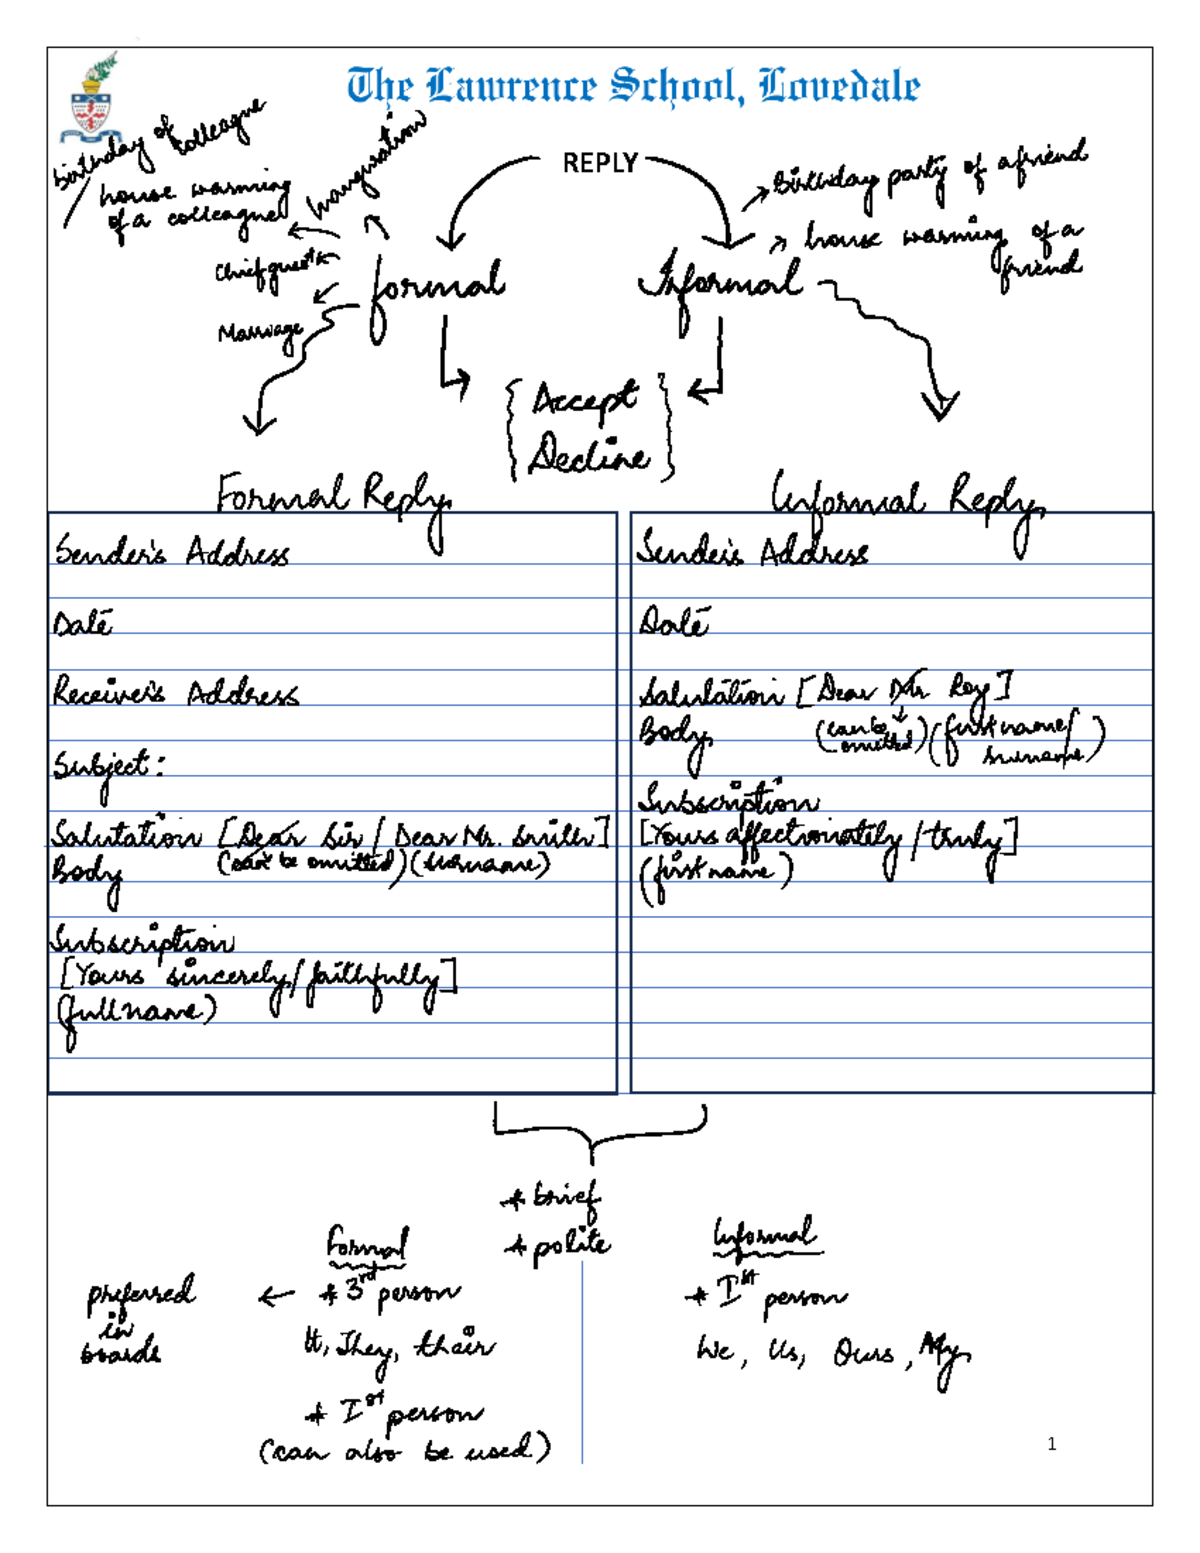 The Lawrence School, Lovedale
REPLY
birthday of colleague
house warming
of a colleague
Inauguration
Chief guest
Marriage
formal
Informal
Birthday party of a friend
house warming of a
friend
Accept
Decline
Formal Reply
Sender's Address
Date
Receiver's Address
Subject:
Salutation [Dear Sir / Dear Mr. Smith]
(can't be omitted) (surname)
Body
Subscription
[Yours sincerely / faithfully]
(full name)
Informal Reply
Sender's Address
Date
Salutation [Dear Mr Roy]
Body
(can be
omitted)
(first name/
surname)
Subscription
[Yours affectionately / truly]
(first name)
* brief
* polite
Formal
* 3rd person
preferred
in
boards
It, They, their
* Ist person
(can also be used)
Informal
* Ist person
We, Us, Ours, My
1